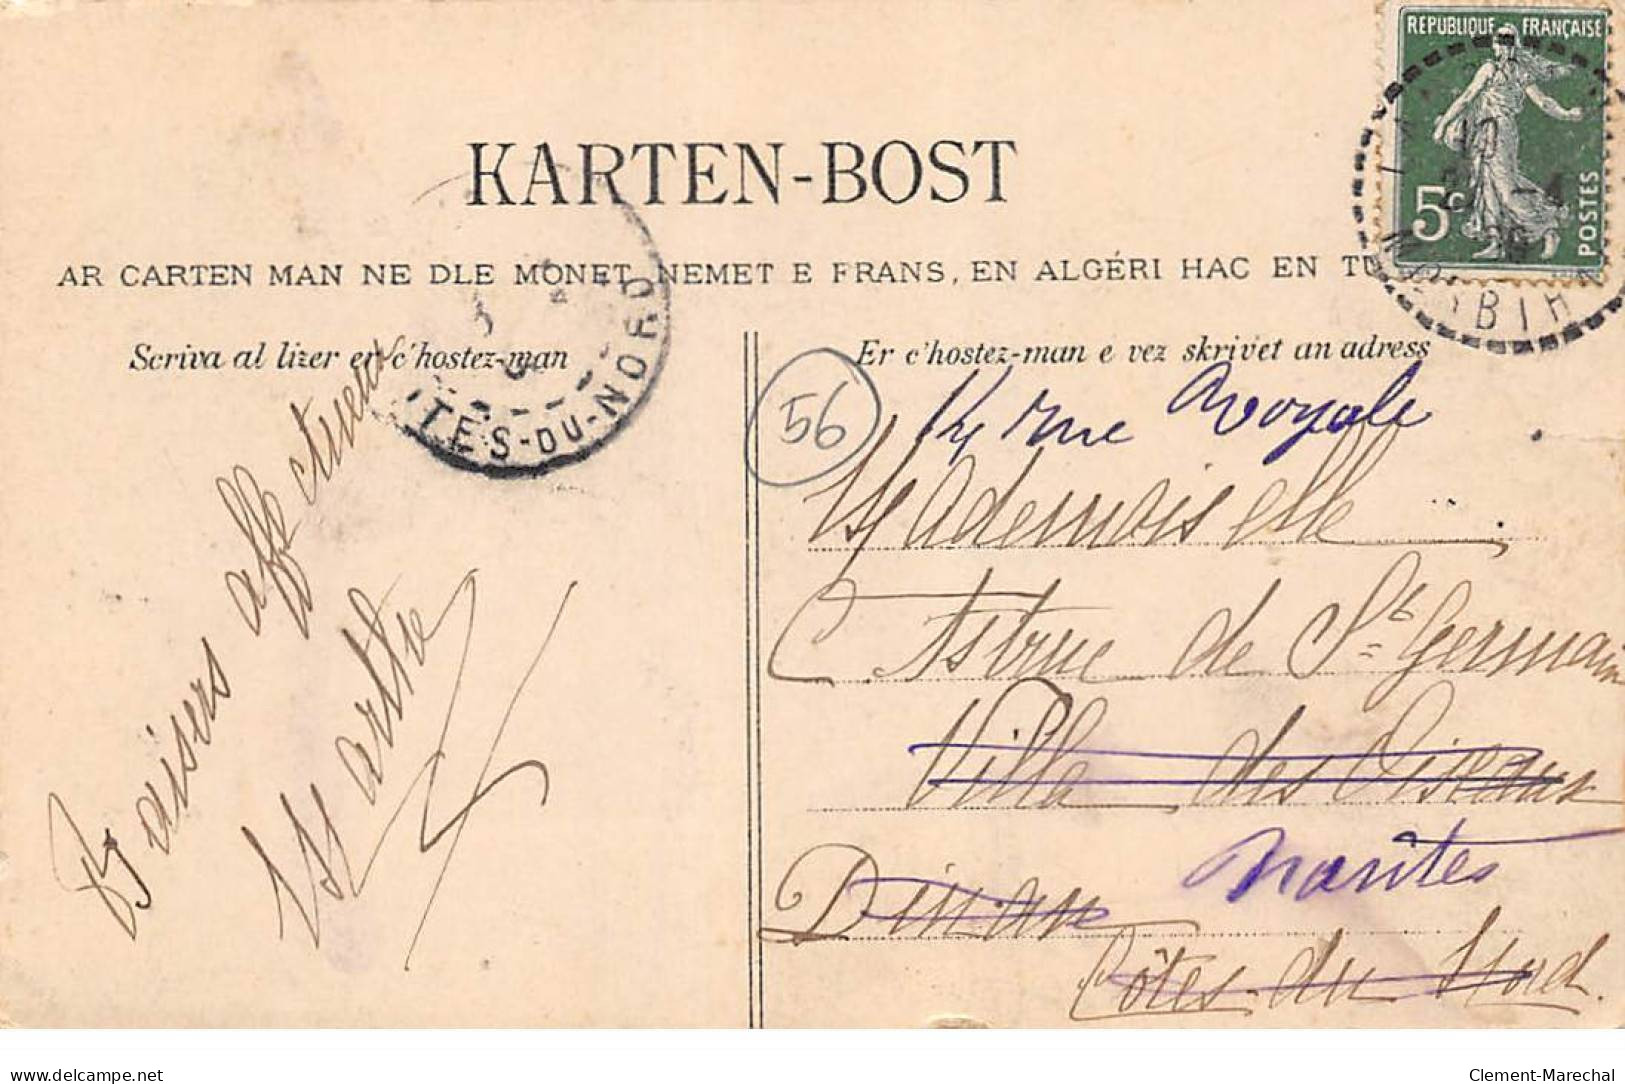 REPUBLIQUE FRANÇAISE
5c
POSTES
MORBIHAN
KARTEN-BOST
AR CARTEN MAN NE DLE MONET NEMET E FRANS, EN ALGÉRI HAC EN TU
CÔTES-DU-NORD
Scriva al lizer er c'hostez-man
Er c'hostez-man e vez skrivet an adress
56
14 rue Royale
Mademoiselle
C. Astruc de St Germain
Villa des Oiseaux
Nantes
Dinan
Côtes-du Nord.
Baisers affectueux
Marthe
delcampe.net
Clement-Marechal